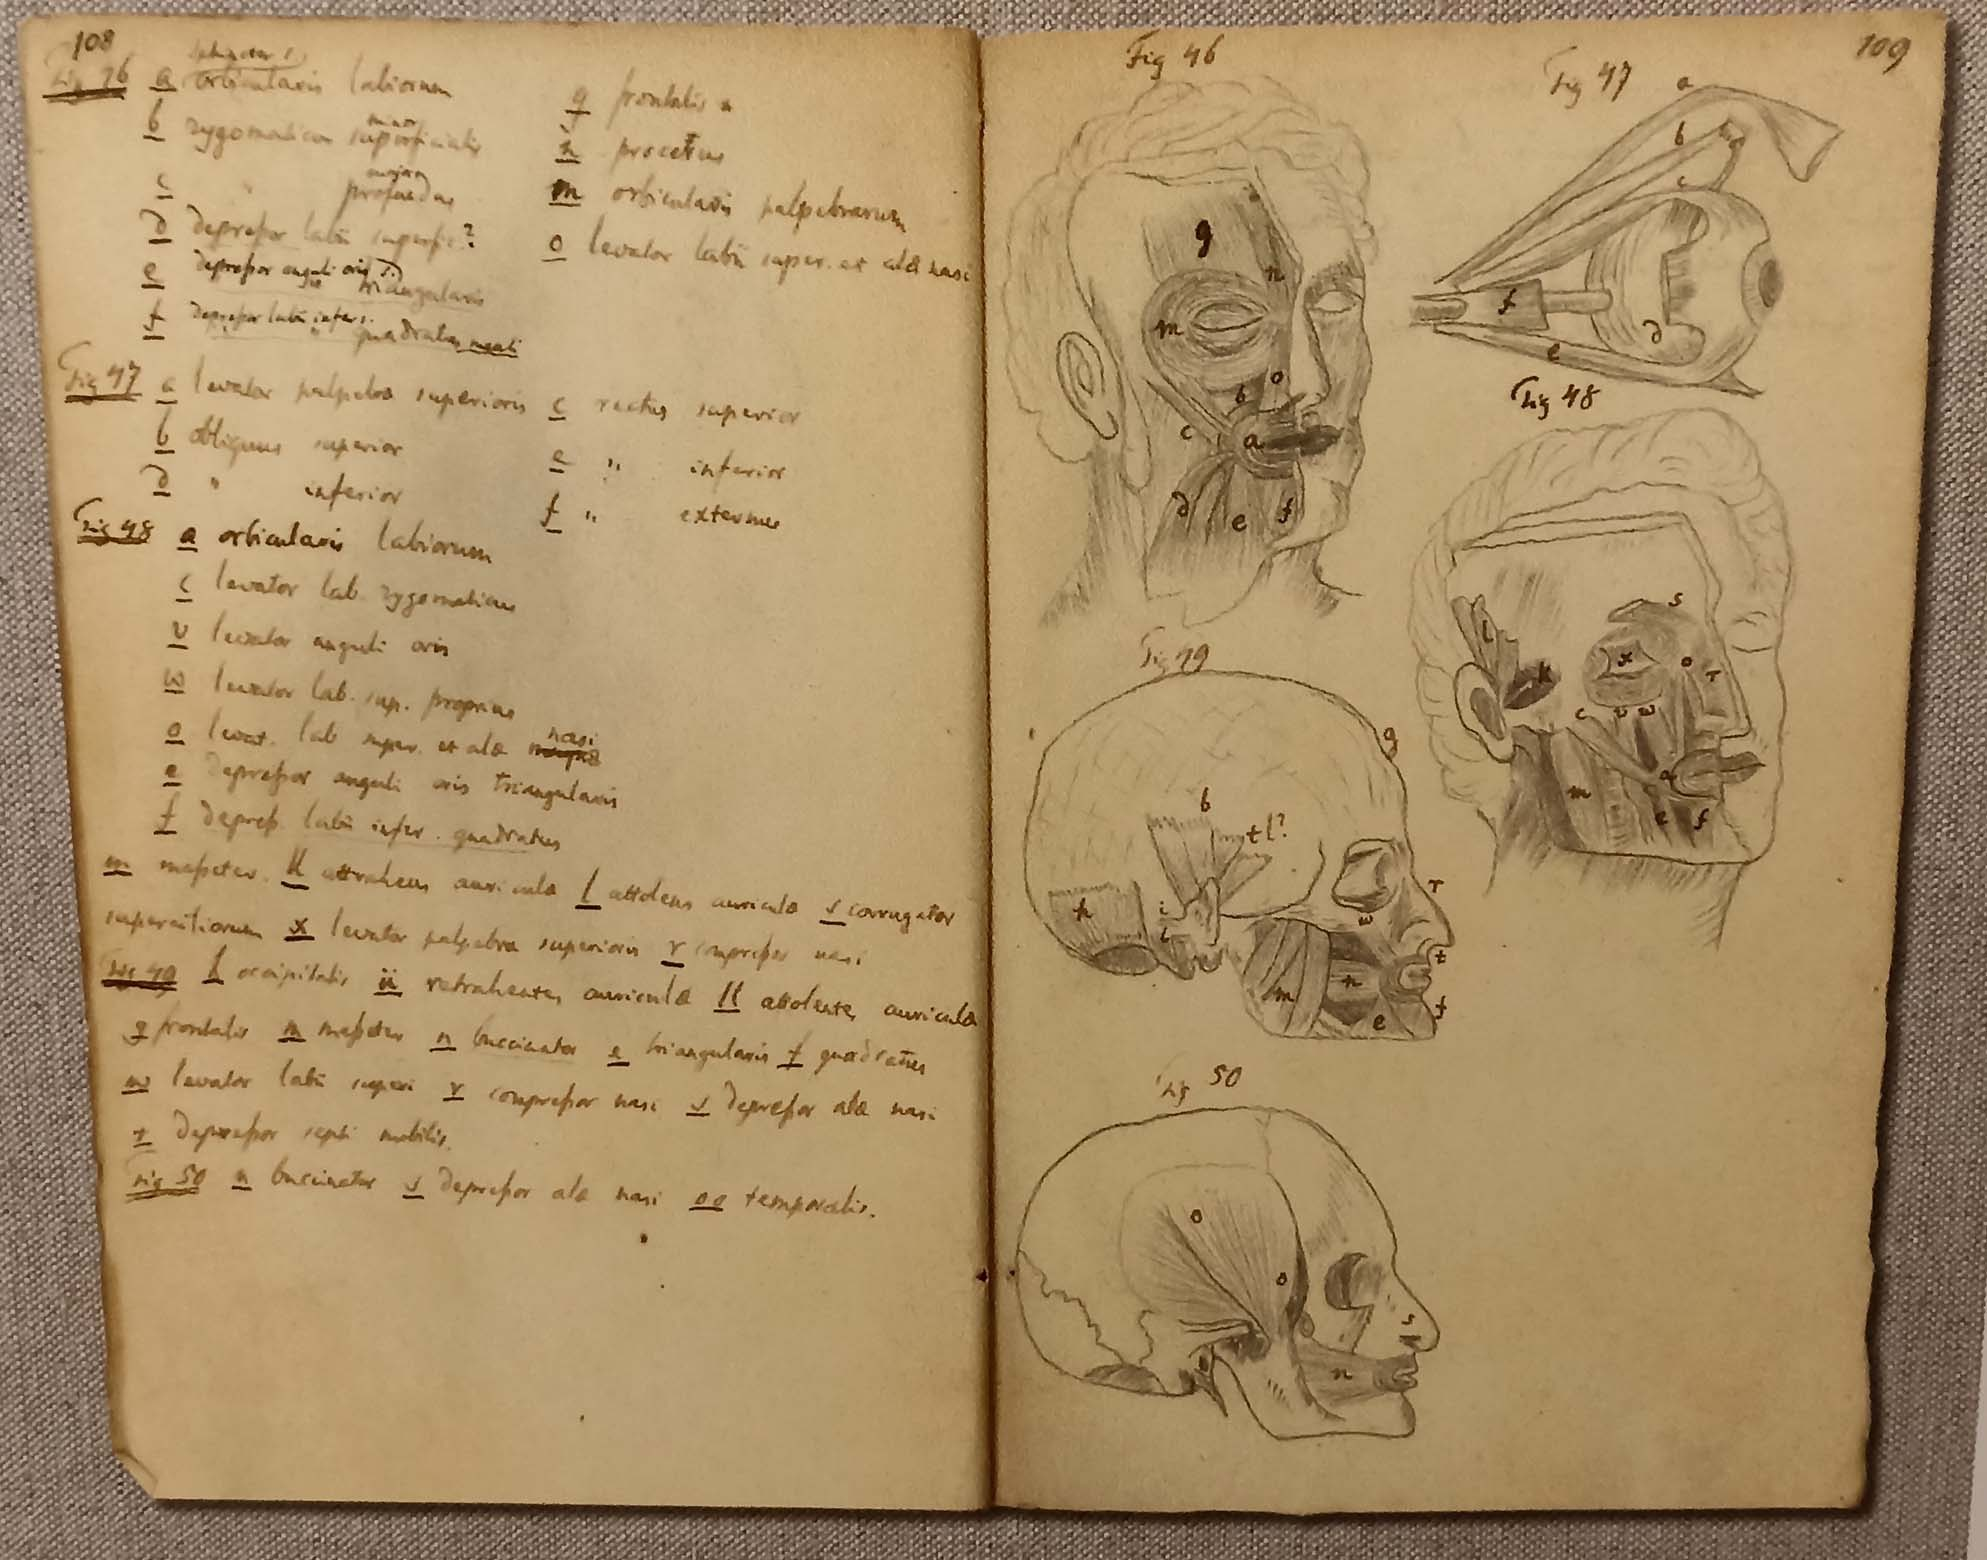 108
Fig 46 a sphincter s. orbicularis labiorum
b zygomaticus superficialis minor
c " profundus major
d depressor labii superfic?
e depressor anguli oris s. triangularis
f depressor labii infer. s. quadratus menti
g frontalis
n procerus
m orbicularis palpebrarum
o levator labii super. et alæ nasi
Fig 47 a levator palpebræ superioris c rectus superior
b obliquus superior e " inferior
d " inferior f " externus
Fig 48 a orbicularis labiorum
c levator lab. zygomaticus
v levator anguli oris
w levator lab. sup. proprius
o levat. lab super. et alæ nasi
e depreßor anguli oris triangularis
f depreß. labii infer. quadratus
m maßeter. k attrahens auriculæ l attolens auriculæ s corrugator
superciliorum x levator palpebra superioris r compreßor nasi
Fig 49 h occipitalis ii retrahentes auriculæ ll attolentes auriculæ
g frontalis m maßeter n buccinator e triangularis f quadratus
w levator labii superi r compreßor nasi s depreßor alæ nasi
t depreßor septi mobilis.
Fig 50 n buccinator s depreßor alæ nasi oo temporalis.
109
Fig 46
g
n
m
o
b
c
a
d e f
Fig 47
a
b
c
f
d
e
Fig 48
s
l
k x o r
c v w
a
m
e f
Fig 49
g
b
t l?
r
h i w
i
t
m n
f
e
Fig 50
o
o
s
n